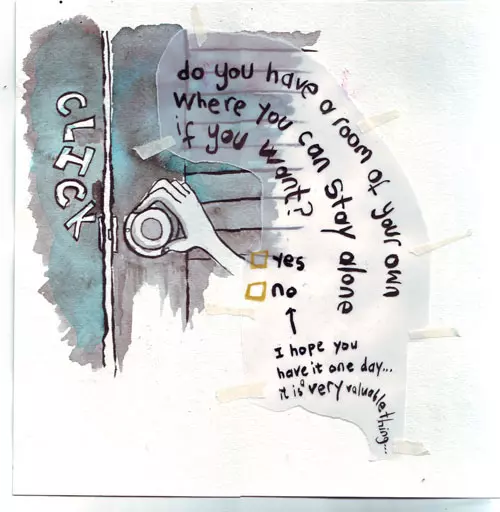 CLICK
do you have a room of your own
where you can stay alone
if you want?
yes
no
I hope you
have it one day...
it is very valuable thing...